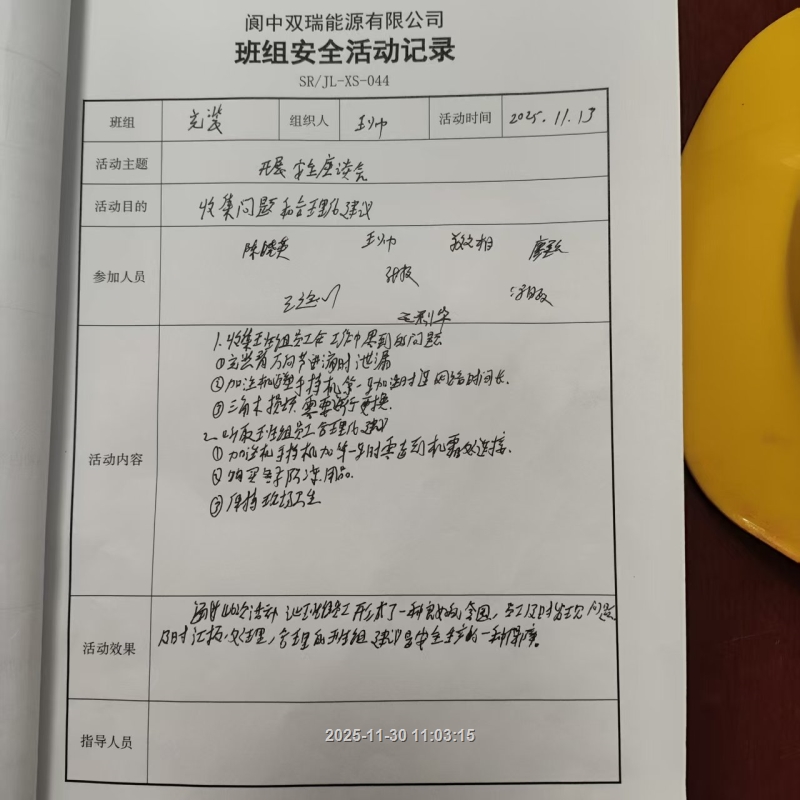 阆中双瑞能源有限公司
班组安全活动记录
SR/JL-XS-044
班组 充装 组织人 王帅 活动时间 2025.11.13
活动主题 开展安全座谈会
活动目的 收集问题和合理化建议
参加人员 陈晓英 王帅
活动内容
1.收集班组员工在工作中遇到的问题
①立贡首万向节进液时泄漏
②加注机手持机第一次加注时网络时间长.
③三角木损坏需要进行更换.
2.听取班组员工合理化建议
①加注机手持机加第一车时需要到机器处连接.
②购买冬季防冻用品.
③保持现场卫生
活动效果 通过此次活动 让班组员工形成了一种良好的氛围,员工及时发现问题
及时汇报,处理,合理的班组建议是安全生产的一种保障。
指导人员
2025-11-30 11:03:15